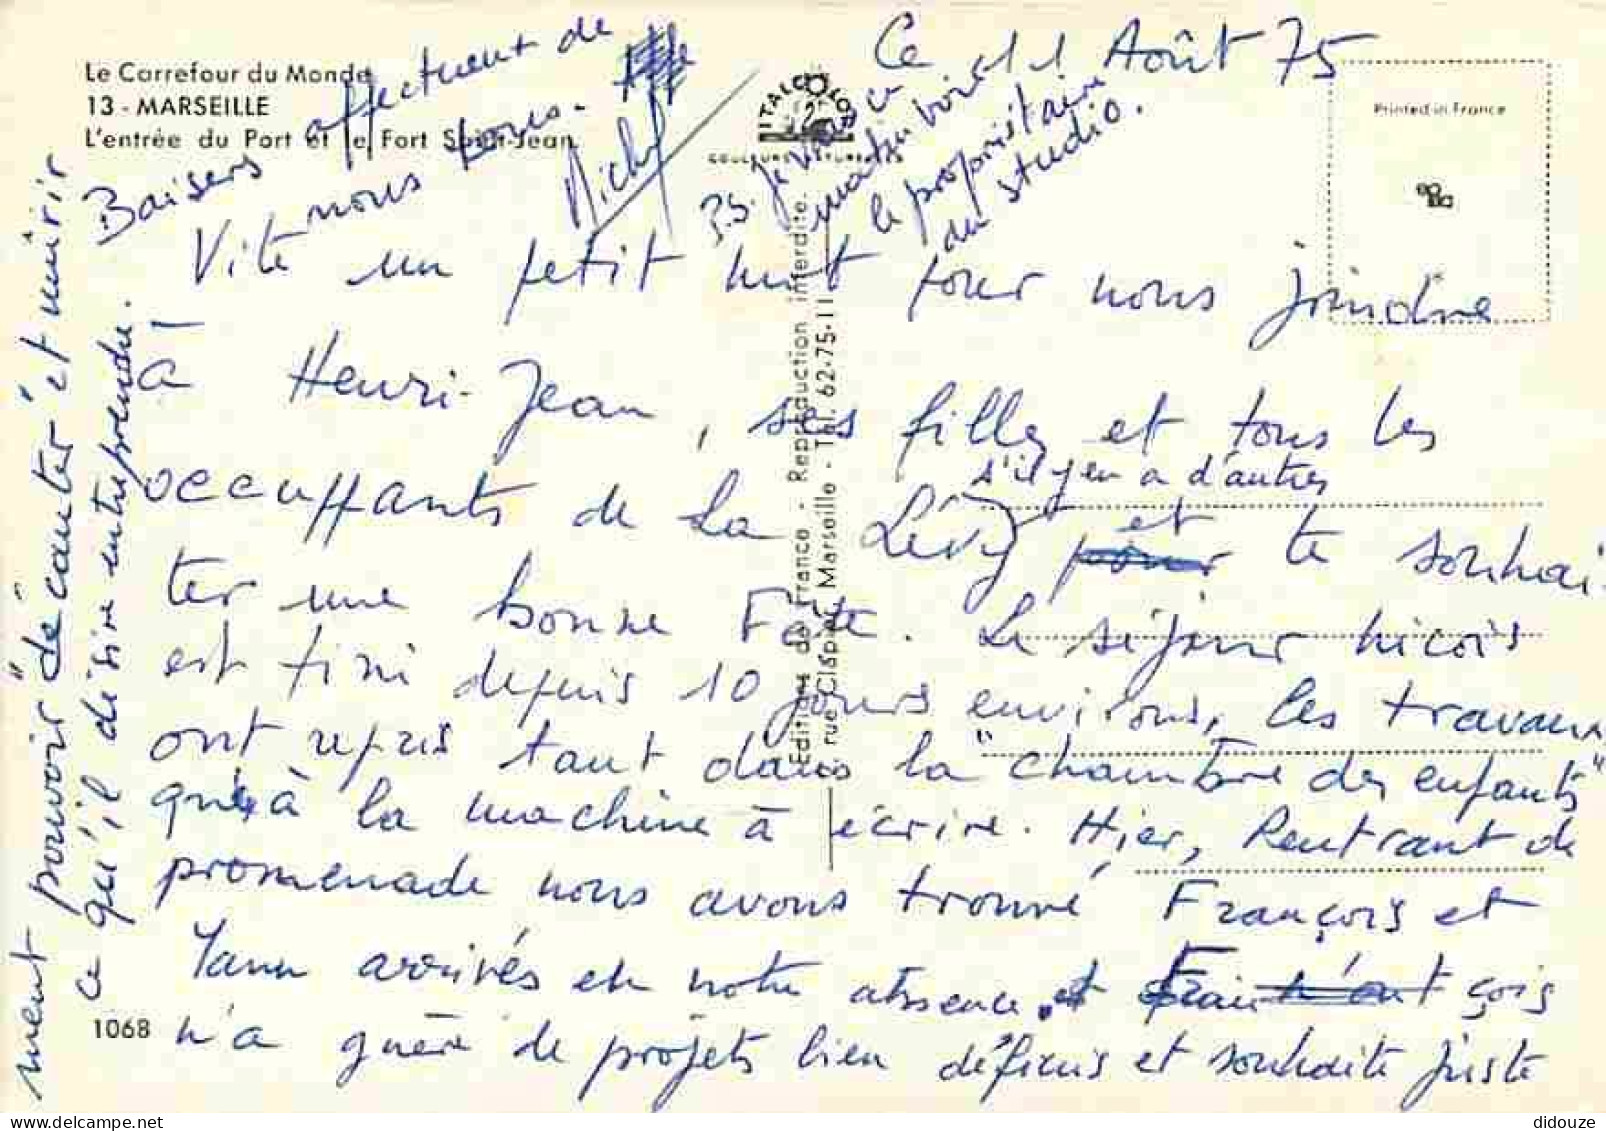 Le Carrefour du Monde
13 - MARSEILLE
L'entrée du Port et le Fort Saint-Jean
ITALCOLOR
Printed in France
Ce 11 Août 75
Vite un petit mot pour nous joindre
à Henri-Jean, ses filles et tous les
s'il y en a d'autres
occuppants de la Lévy et te souhai-
ter une bonne Fête. Le séjour niçois
est fini depuis 10 jours environs, les travaux
ont repris tant dans la "chambre des enfants"
qu'à la machine à écrire. Hier, Rentrant de
promenade nous avons trouvé François et
Yann arrivés en notre absence. et François
n'a guère de projets bien définis et souhaite juste
ment pouvoir décanter et mûrir
ce qu'il désire entreprendre.
Baisers affectueut de
nous tous.
Michel
P.S. Je vais ce
matin voir
le propriétaire
du studio.
Editions de France - Reproduction interdite.
rue Crispin, Marseille - Tél. 62-75-11
1068
didouze